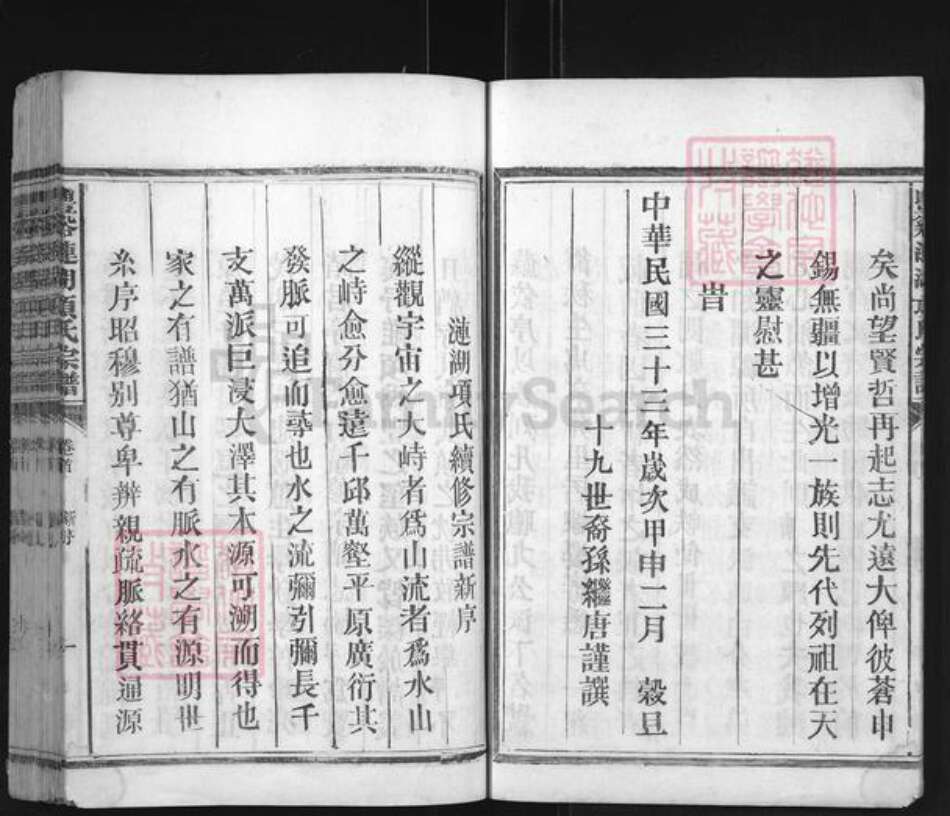 矣尚望賢哲再起志尤遠大俾彼蒼申
錫無疆以增光一族則先代列祖在天
之靈慰甚
旹
中華民國三十三年歲次甲申二月 穀旦
十九世裔孫繼唐謹譔
漣湖項氏續修宗譜新序
縱觀宇宙之大峙者爲山流者爲水山
之峙愈分愈遠千邱萬壑平原廣衍其
發脈可追而尋也水之流彌引彌長千
支萬派巨浸大澤其本源可溯而得也
家之有譜猶山之有脈水之有源明世
系序昭穆别尊卑辨親疏脈絡貫通源
漣湖項氏宗譜
卷首
新序
一
FamilySearch